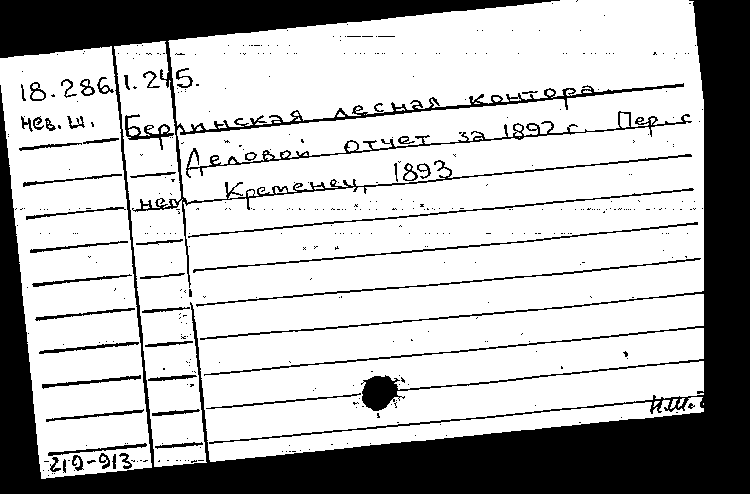 18.286.1.245.
нев. ш. Берлинская лесная контора
Деловой отчет за 1892 г. Пер. с
нем. Кременец, 1893
219-913